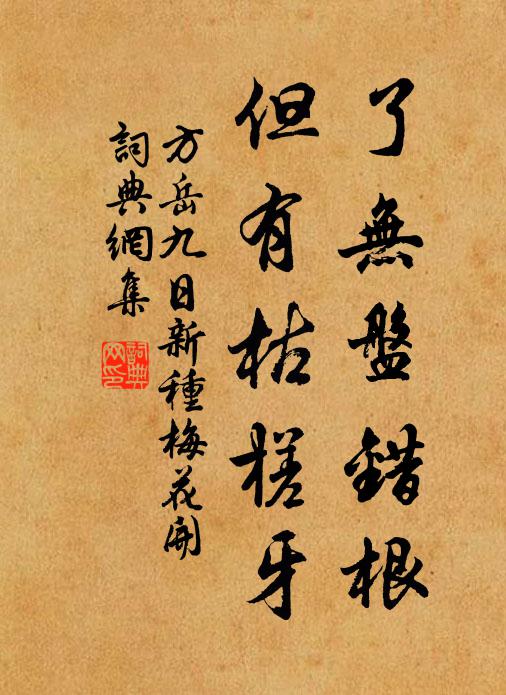 了無盤錯根
但有枯槎牙
方岳九日新種梅花開
詞典網集
詞典網印